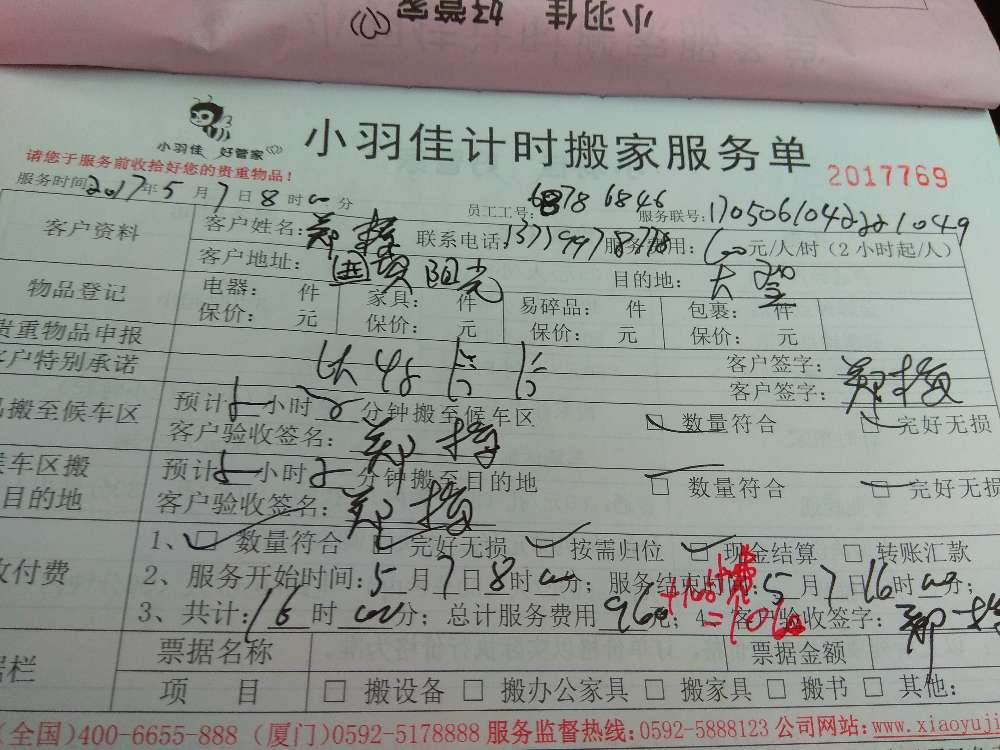 小羽佳 好管家
小羽佳 好管家
小羽佳计时搬家服务单
请您于服务前收拾好您的贵重物品!
2017769
服务时间2017年5月7日8时00分 员工工号: 6846 服务联号:
客户资料 客户姓名:郑 联系电话: 服务费用: 元/人/时(2小时起/人)
客户地址: 阳光 目的地:
物品登记 电器: 件 家具: 件 易碎品: 件 包裹: 件
保价: 元 保价: 元 保价: 元 保价: 元
贵重物品申报 客户签字:郑
客户特别承诺 客户签字:
搬至候车区 预计 小时 分钟搬至候车区 数量符合 完好无损
客户验收签名:郑
候车区搬 预计 小时 分钟搬至目的地 数量符合 完好无损
目的地 客户验收签名:郑
1、 数量符合 完好无损 按需归位 现金结算 转账汇款
收付费 2、服务开始时间:5月7日8时00分;服务结束时间:5月7日16时00分;
3、共计:16时00分;总计服务费用960元;4、客户验收签字:郑
+100计费
=1060
据栏 票据名称 票据金额
项 目 搬设备 搬办公家具 搬家具 搬书 其他:
(全国)400-6655-888 (厦门)0592-5178888 服务监督热线:0592-5888123 公司网站:www.xiaoyuji